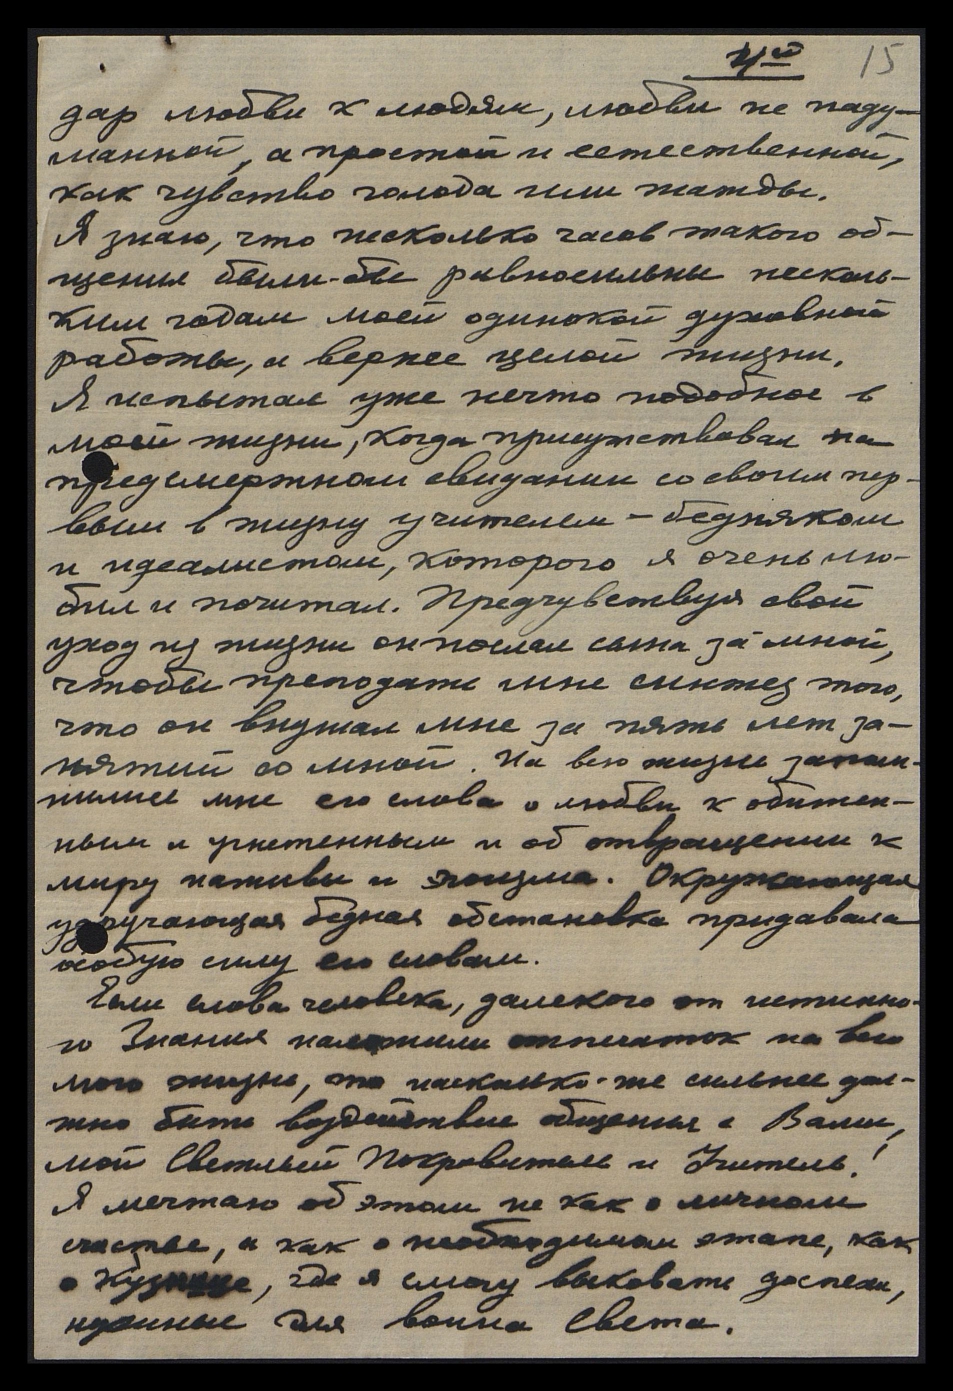 4й 15
дар любви к людям, любви не наду-
манной, а простой и естественной,
как чувство голода или жажды.
Я знаю, что несколько часов такого об-
щения были-бы равносильны несколь-
ким годам моей одинокой духовной
работы, а вернее целой жизни.
Я испытал уже нечто подобное в
моей жизни, когда присутствовал на
предсмертном свидании со своим пер-
вым в жизни учителем – бедняком
и идеалистом, которого я очень лю-
бил и почитал. Предчувствуя свой
уход из жизни он послал сына за мной,
чтобы преподать мне синтез того,
что он внушал мне за пять лет за-
нятий со мной. На всю жизнь запом-
нились мне его слова о любви к обижен-
ным и угнетенным и об отвращении к
миру наживы и эгоизма. Окружающая
удручающая бедная обстановка придавала
особую силу его словам.
Если слова человека, далекого от истинно-
го Знания наложили отпечаток на всю
мою жизнь, то насколько-же сильнее дол-
жно быть воздействие общения с Вами,
мой Светлый Покровитель и Учитель!
Я мечтаю об этом не как о личном
счастье, а как о необходимом этапе, как
о Кузнице, где я смогу выковать доспехи,
нужные для воина Света.